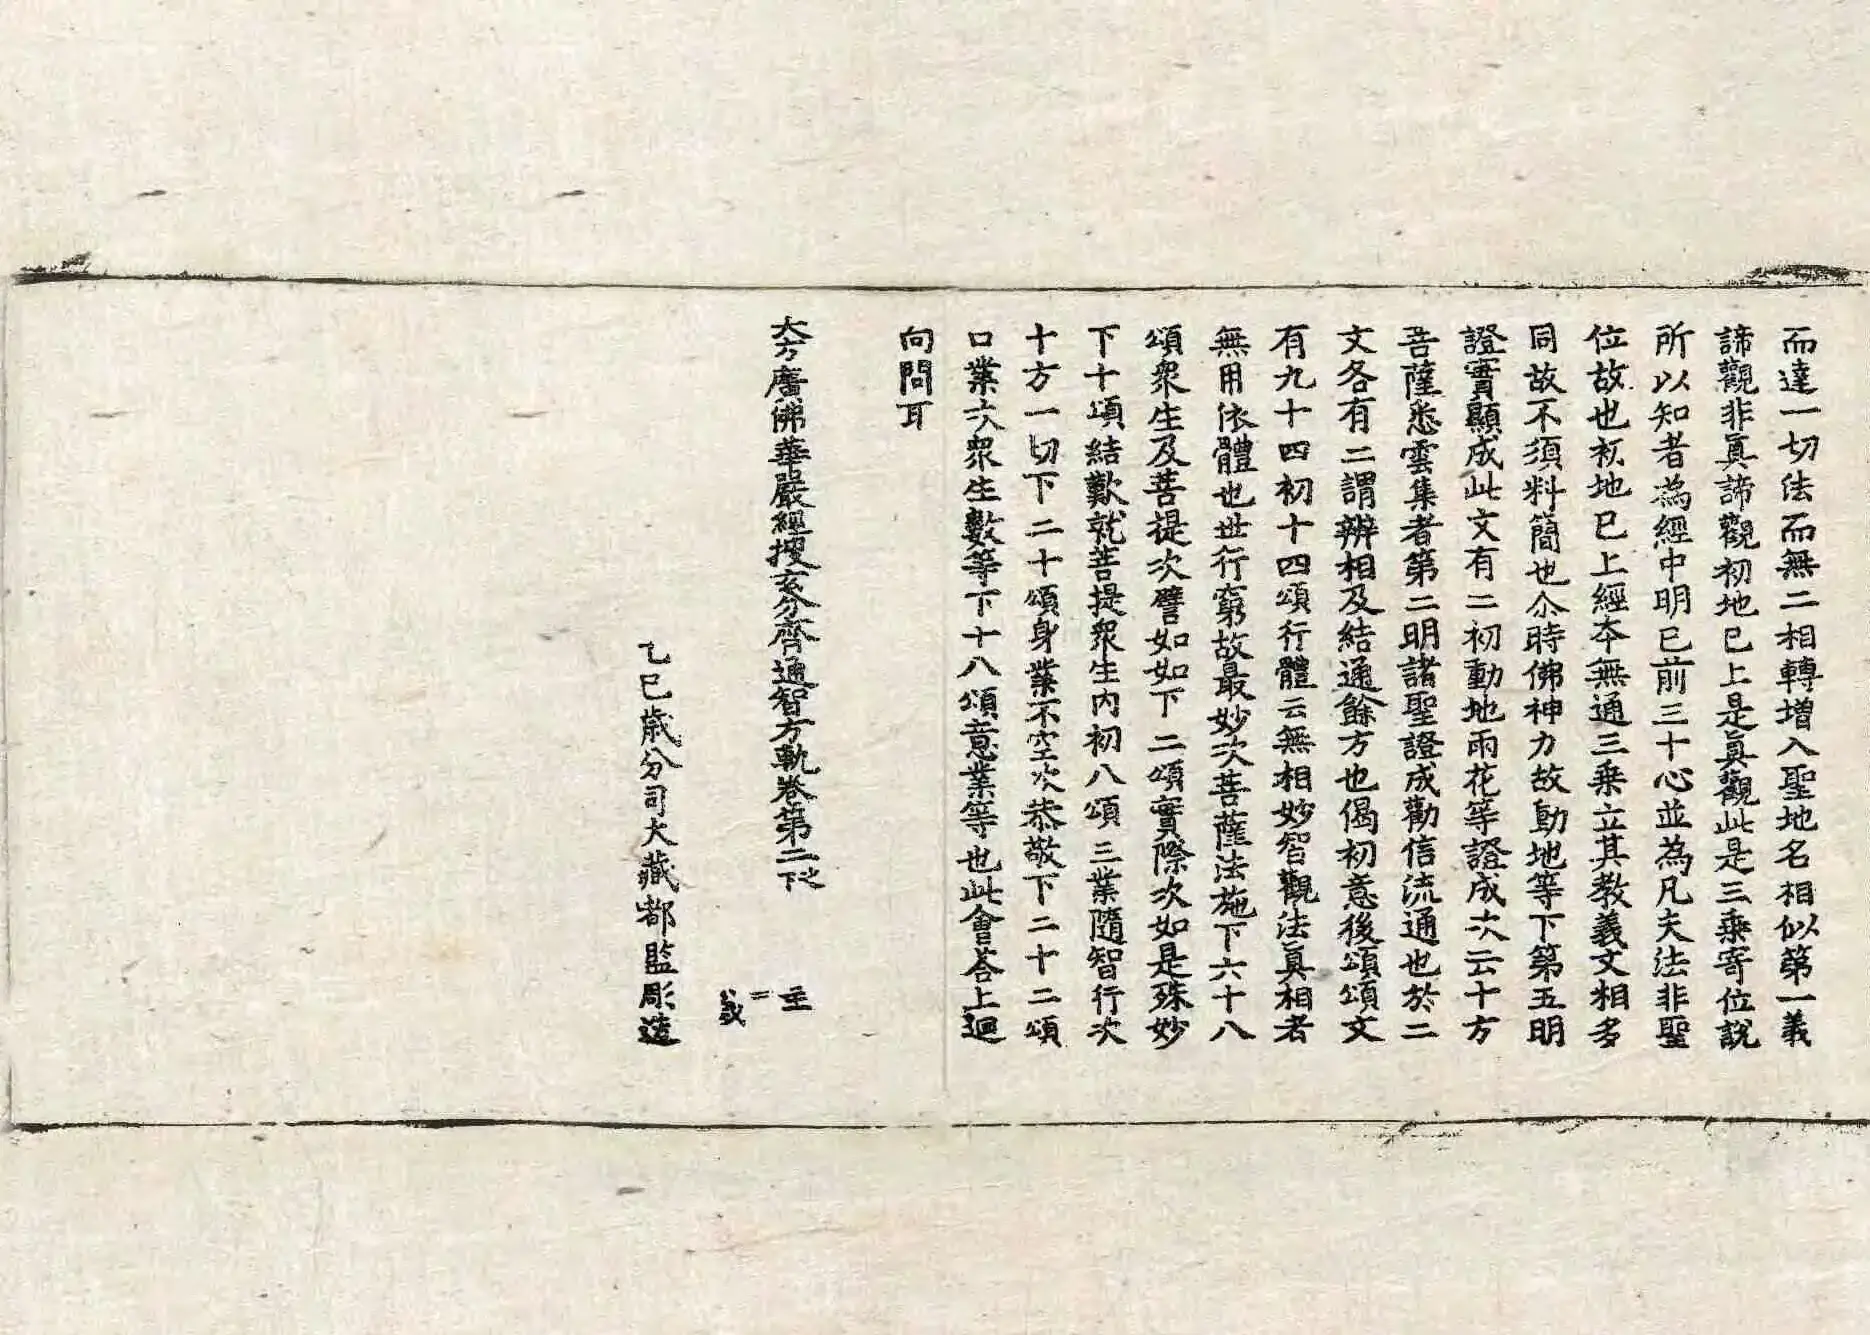 而達一切法而無二相轉增入聖地名相似第一義
諦觀非眞諦觀初地已上是眞觀此是三乘寄位說
所以知者為經中明已前三十心並為凡夫法非聖
位故也初地已上經夲無通三乘立其教義文相多
同故不須料簡也尒時佛神力故動地等下第五明
證實顯成此文有二初動地雨花等證成次云十方
菩薩悉雲集者第二明諸聖證成勸信流通也於二
文各有二謂辨相及結通餘方也偈初意後頌頌文
有九十四初十四頌行體云無相妙智觀法眞相者
無用依體也世行窮故最妙次菩薩法施下六十八
頌衆生及菩提次譬如如下二頌實際次如是殊妙
下十頌結歎就菩提衆生內初八頌三業隨智行次
十方一切下二十頌身業不空次恭敬下二十二頌
口業次衆生數等下十八頌意業等也此會荅上迴
向問耳
大方廣佛華嚴經搜玄分齊通智方軌卷第二之下
乙巳歲分司大藏都監彫造